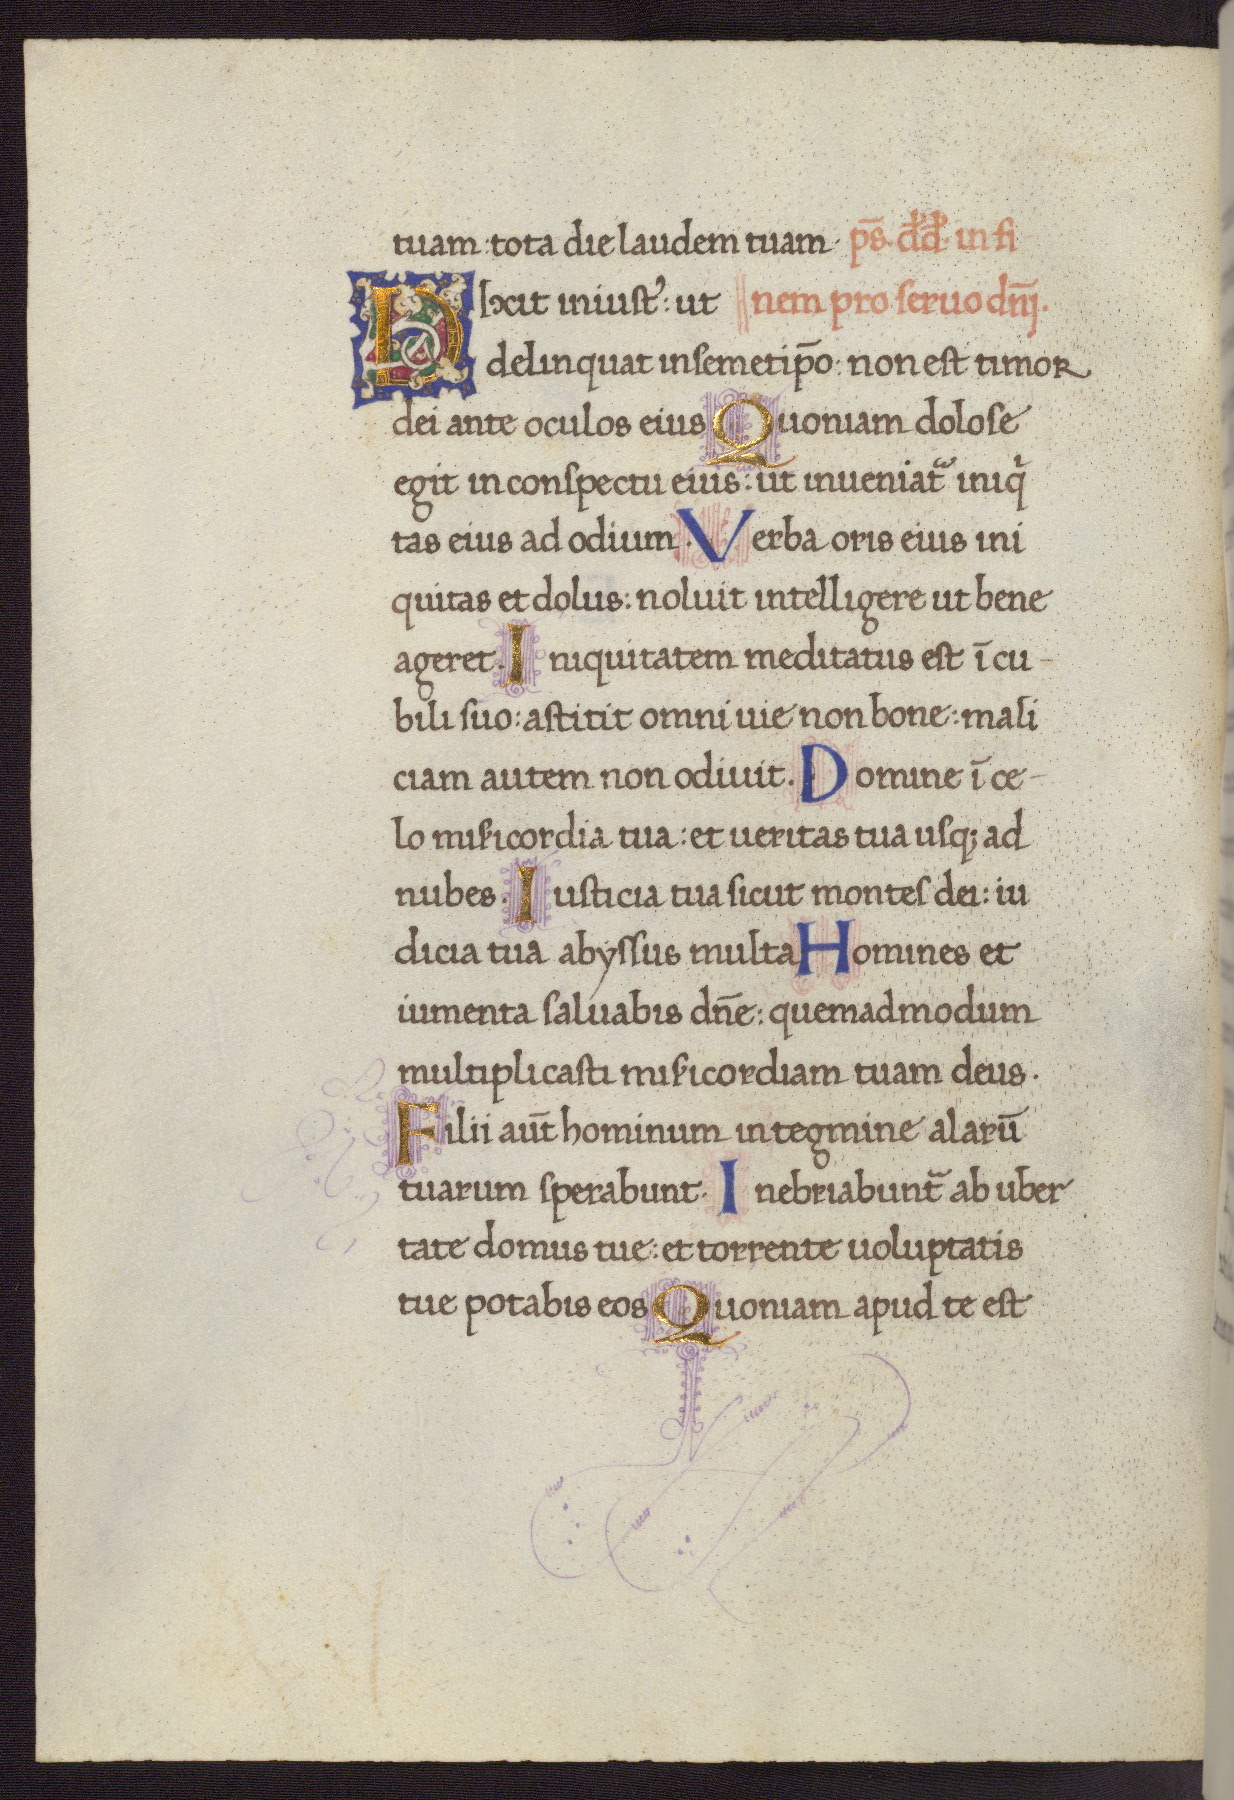 tuam : tota die laudem tuam · ps̄. dd̄. in fi
Dixit iniustꝰ : ut nem pro seruo dn̄j.
delinquat in semetip̄o : non est timor
dei ante oculos eius Quoniam dolose
egit in conspectu eius : ut inueniat᷑ iniqͥ
tas eius ad odium. Verba oris eius ini
quitas et dolus : noluit intelligere ut bene
ageret. Iniquitatem meditatus est ī cu-
bili suo : astitit omni uie non bone : mali
ciam autem non odiuit. Domine ī ce-
lo mißicordia tua : et ueritas tua usq; ad
nubes. Iusticia tua sicut montes dei : iu
dicia tua abyssus multa Homines et
iumenta saluabis dn̄e : quemadmodum
multiplicasti mißicordiam tuam deus.
Filii aut̄ hominum in tegmine alarū
tuarum sperabunt. Inebriabunt᷑ ab uber
tate domus tue : et torrente uoluptatis
tue potabis eos Quoniam apud te est